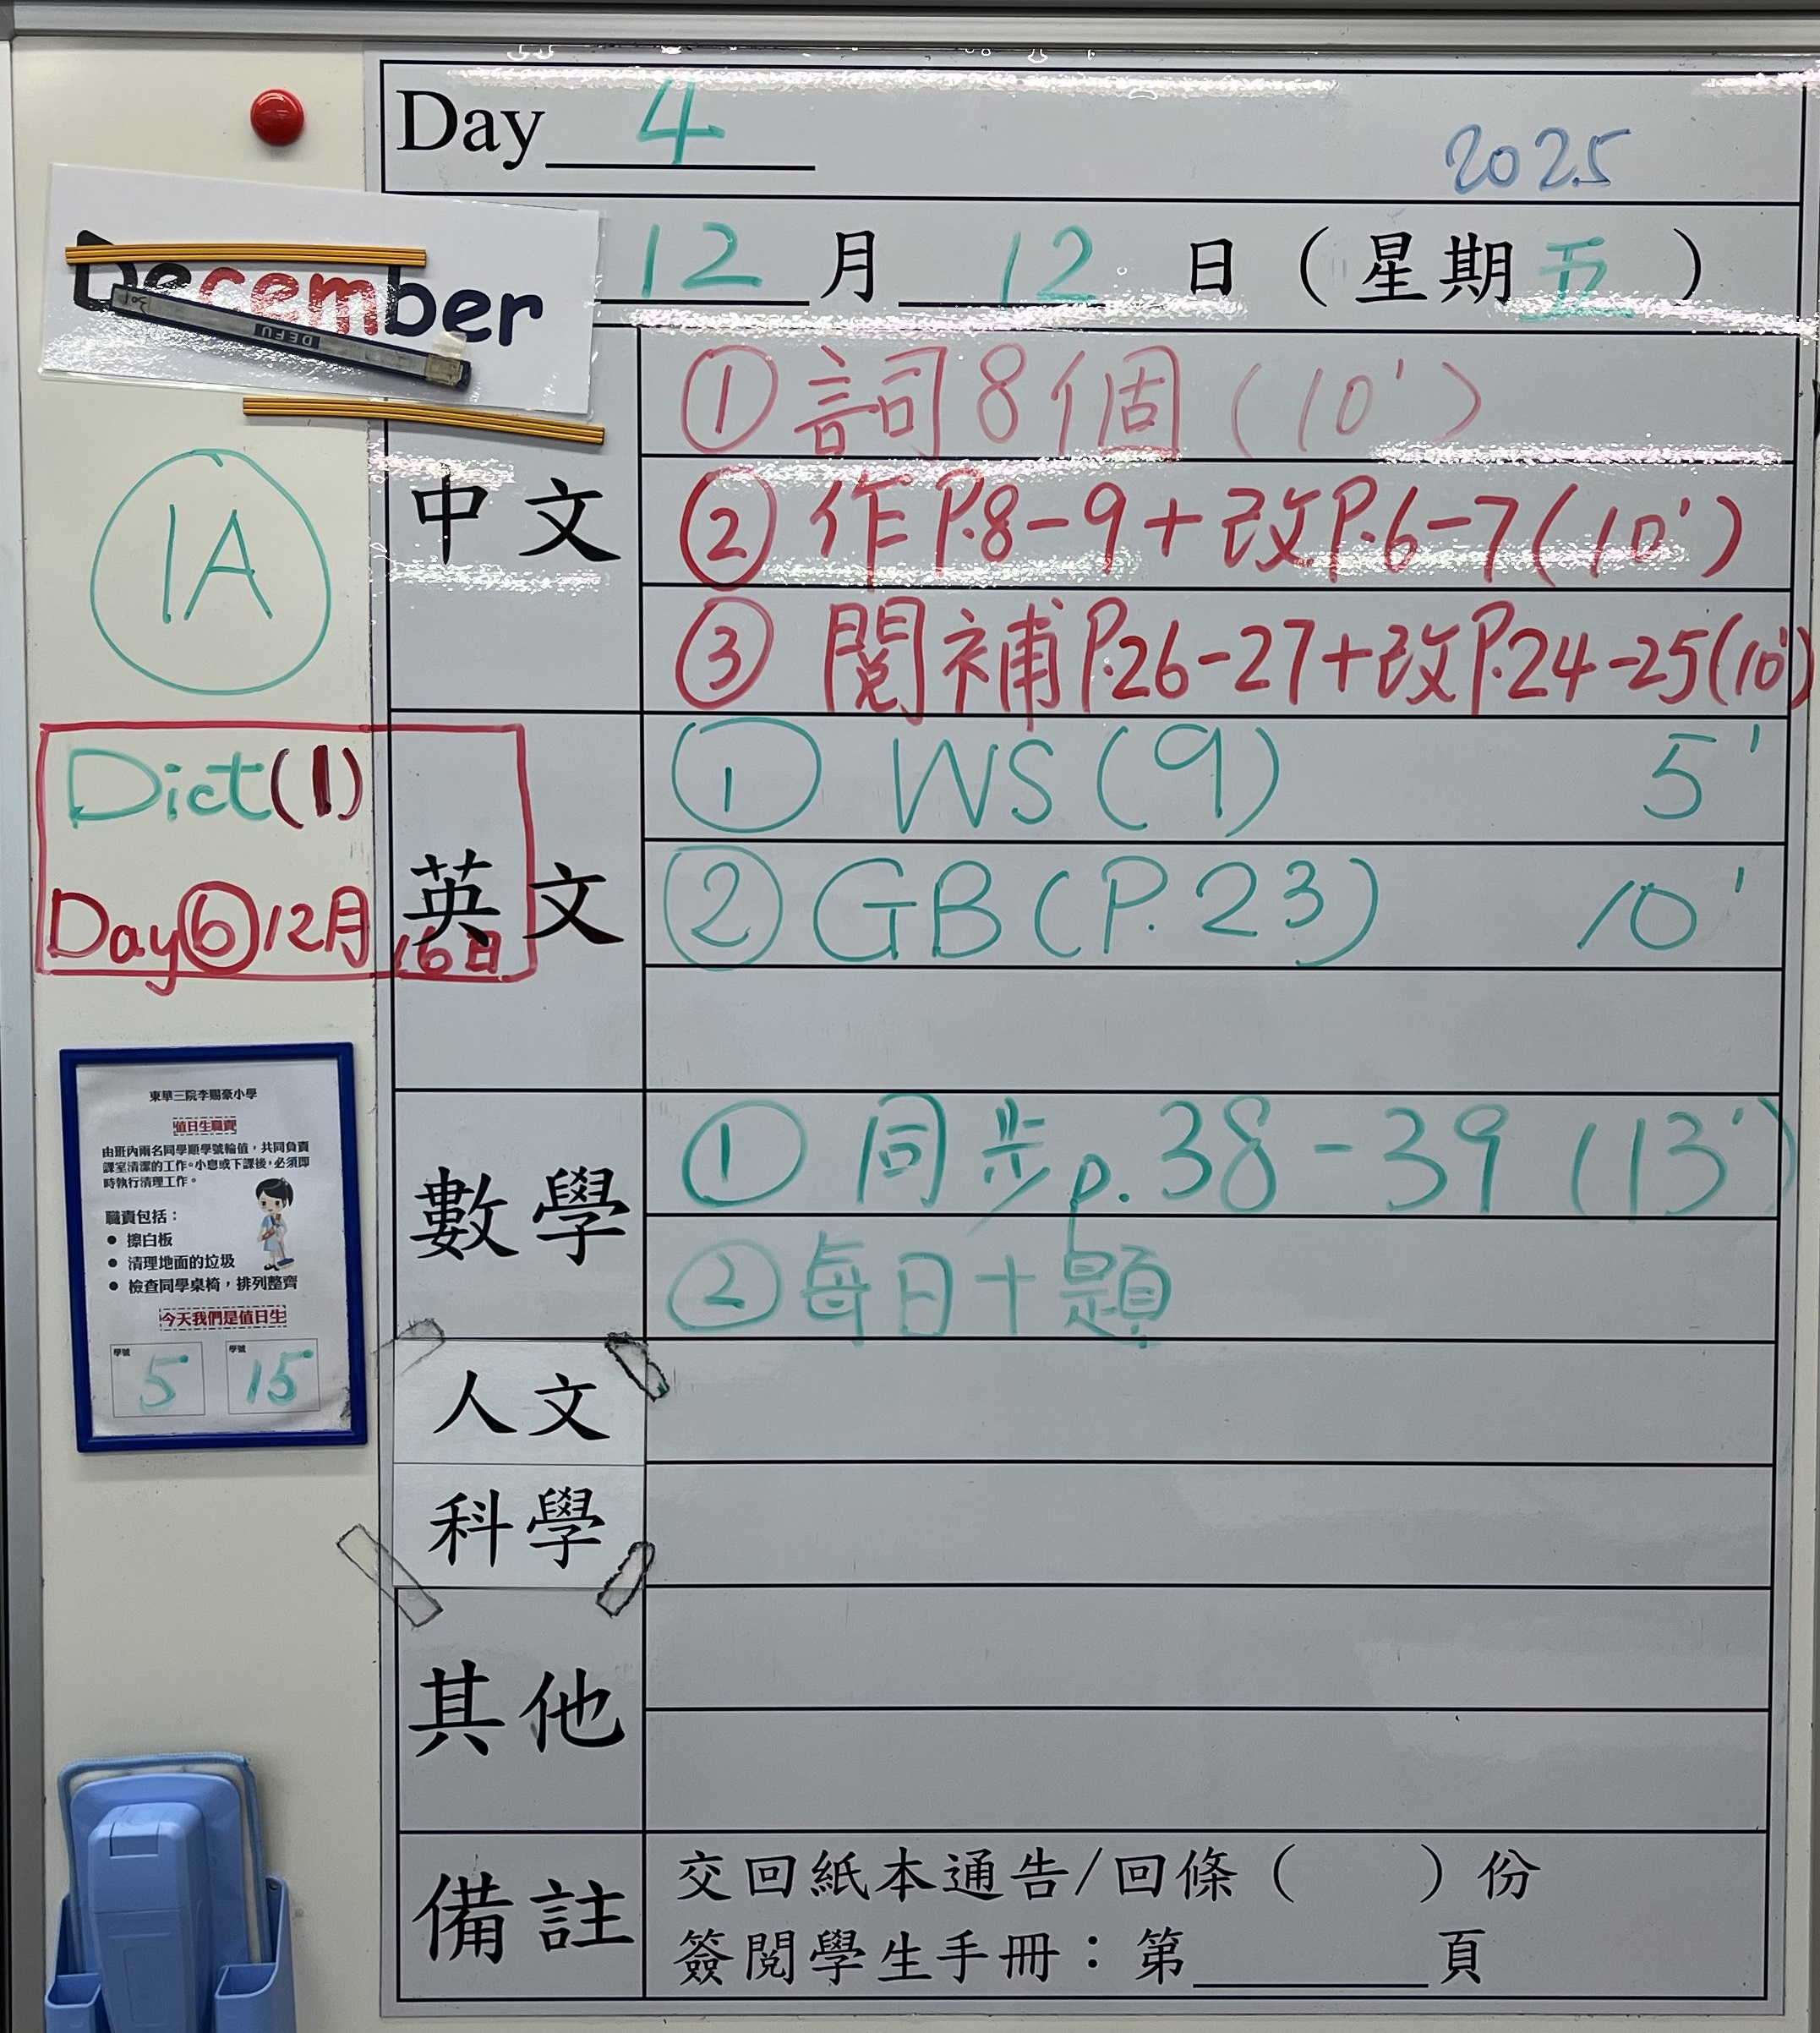 Day 4
2025
December
12 月 12 日 (星期 五 )
1A
中文
① 詞8個 (10')
② 作P.8-9+改P.6-7(10')
③ 閱補P.26-27+改P.24-25(10')
Dict(1)
Day⑥12月16日
英文
① WS(9) 5'
② GB(P.23) 10'
數學
① 同步p.38-39 (13')
② 每日十題
人文
科學
其他
備註
交回紙本通告/回條( )份
簽閱學生手冊:第____頁
東華三院李賜豪小學
值日生職責
由班內兩名同學順學號輪值,共同負責
課室清潔的工作。小息或下課後,必須即
時執行清理工作。
職責包括:
● 擦白板
● 清理地面的垃圾
● 檢查同學桌椅,排列整齊
今天我們是值日生
學號 5 學號 15
DEFU